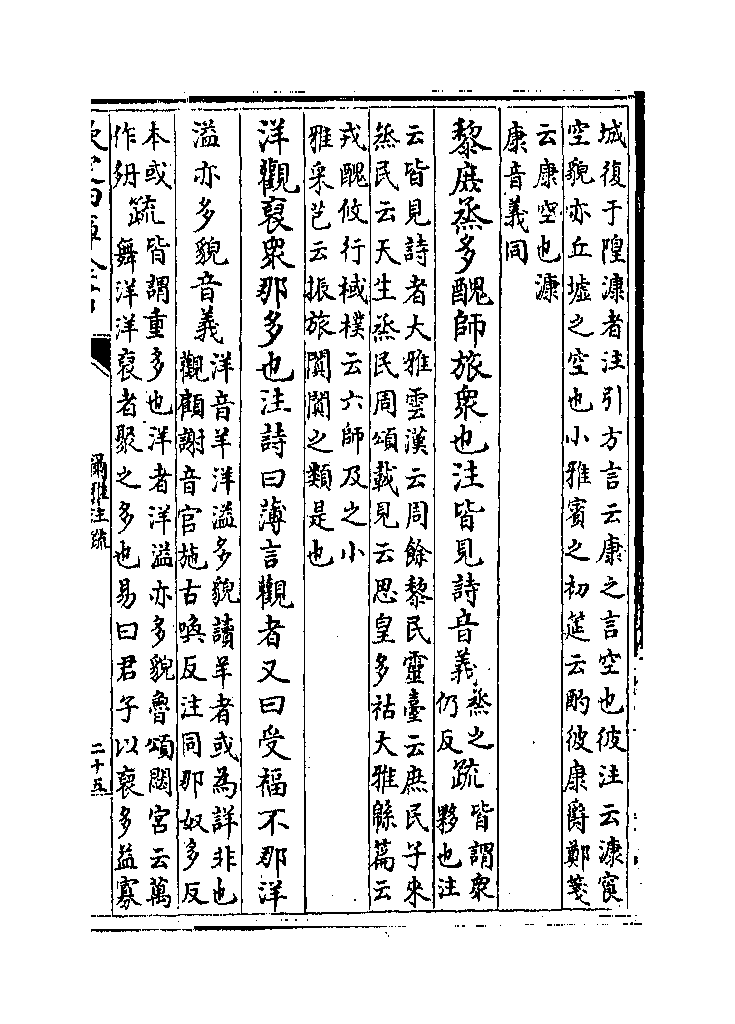 城復于隍漮者注引方言云康之言空也彼注云漮䆡
空貌亦丘墟之空也小雅賓之初筵云酌彼康爵鄭箋
云康空也漮
康音義同
黎庶烝多醜師旅衆也注皆見詩音義
烝之
仍反
疏
皆謂衆
夥也注
云皆見詩者大雅雲漢云周餘黎民靈臺云庶民子來
烝民云天生烝民周頌載見云思皇多祜大雅緜篇云
戎醜攸行棫樸云六師及之小
雅采芑云振旅闐闐之類是也
洋觀裒衆那多也注詩曰薄言觀者又曰受福不那洋
溢亦多貌音義
洋音羊洋溢多貌讀羊者或為詳非也
觀顧謝音官施古喚反注同那奴多反
本或
作𨚗
疏
皆謂重多也洋者洋溢亦多貌魯頌閟宮云萬
舞洋洋裒者聚之多也易曰君子以裒多益寡
欽定四庫全書
爾雅注疏
二十五